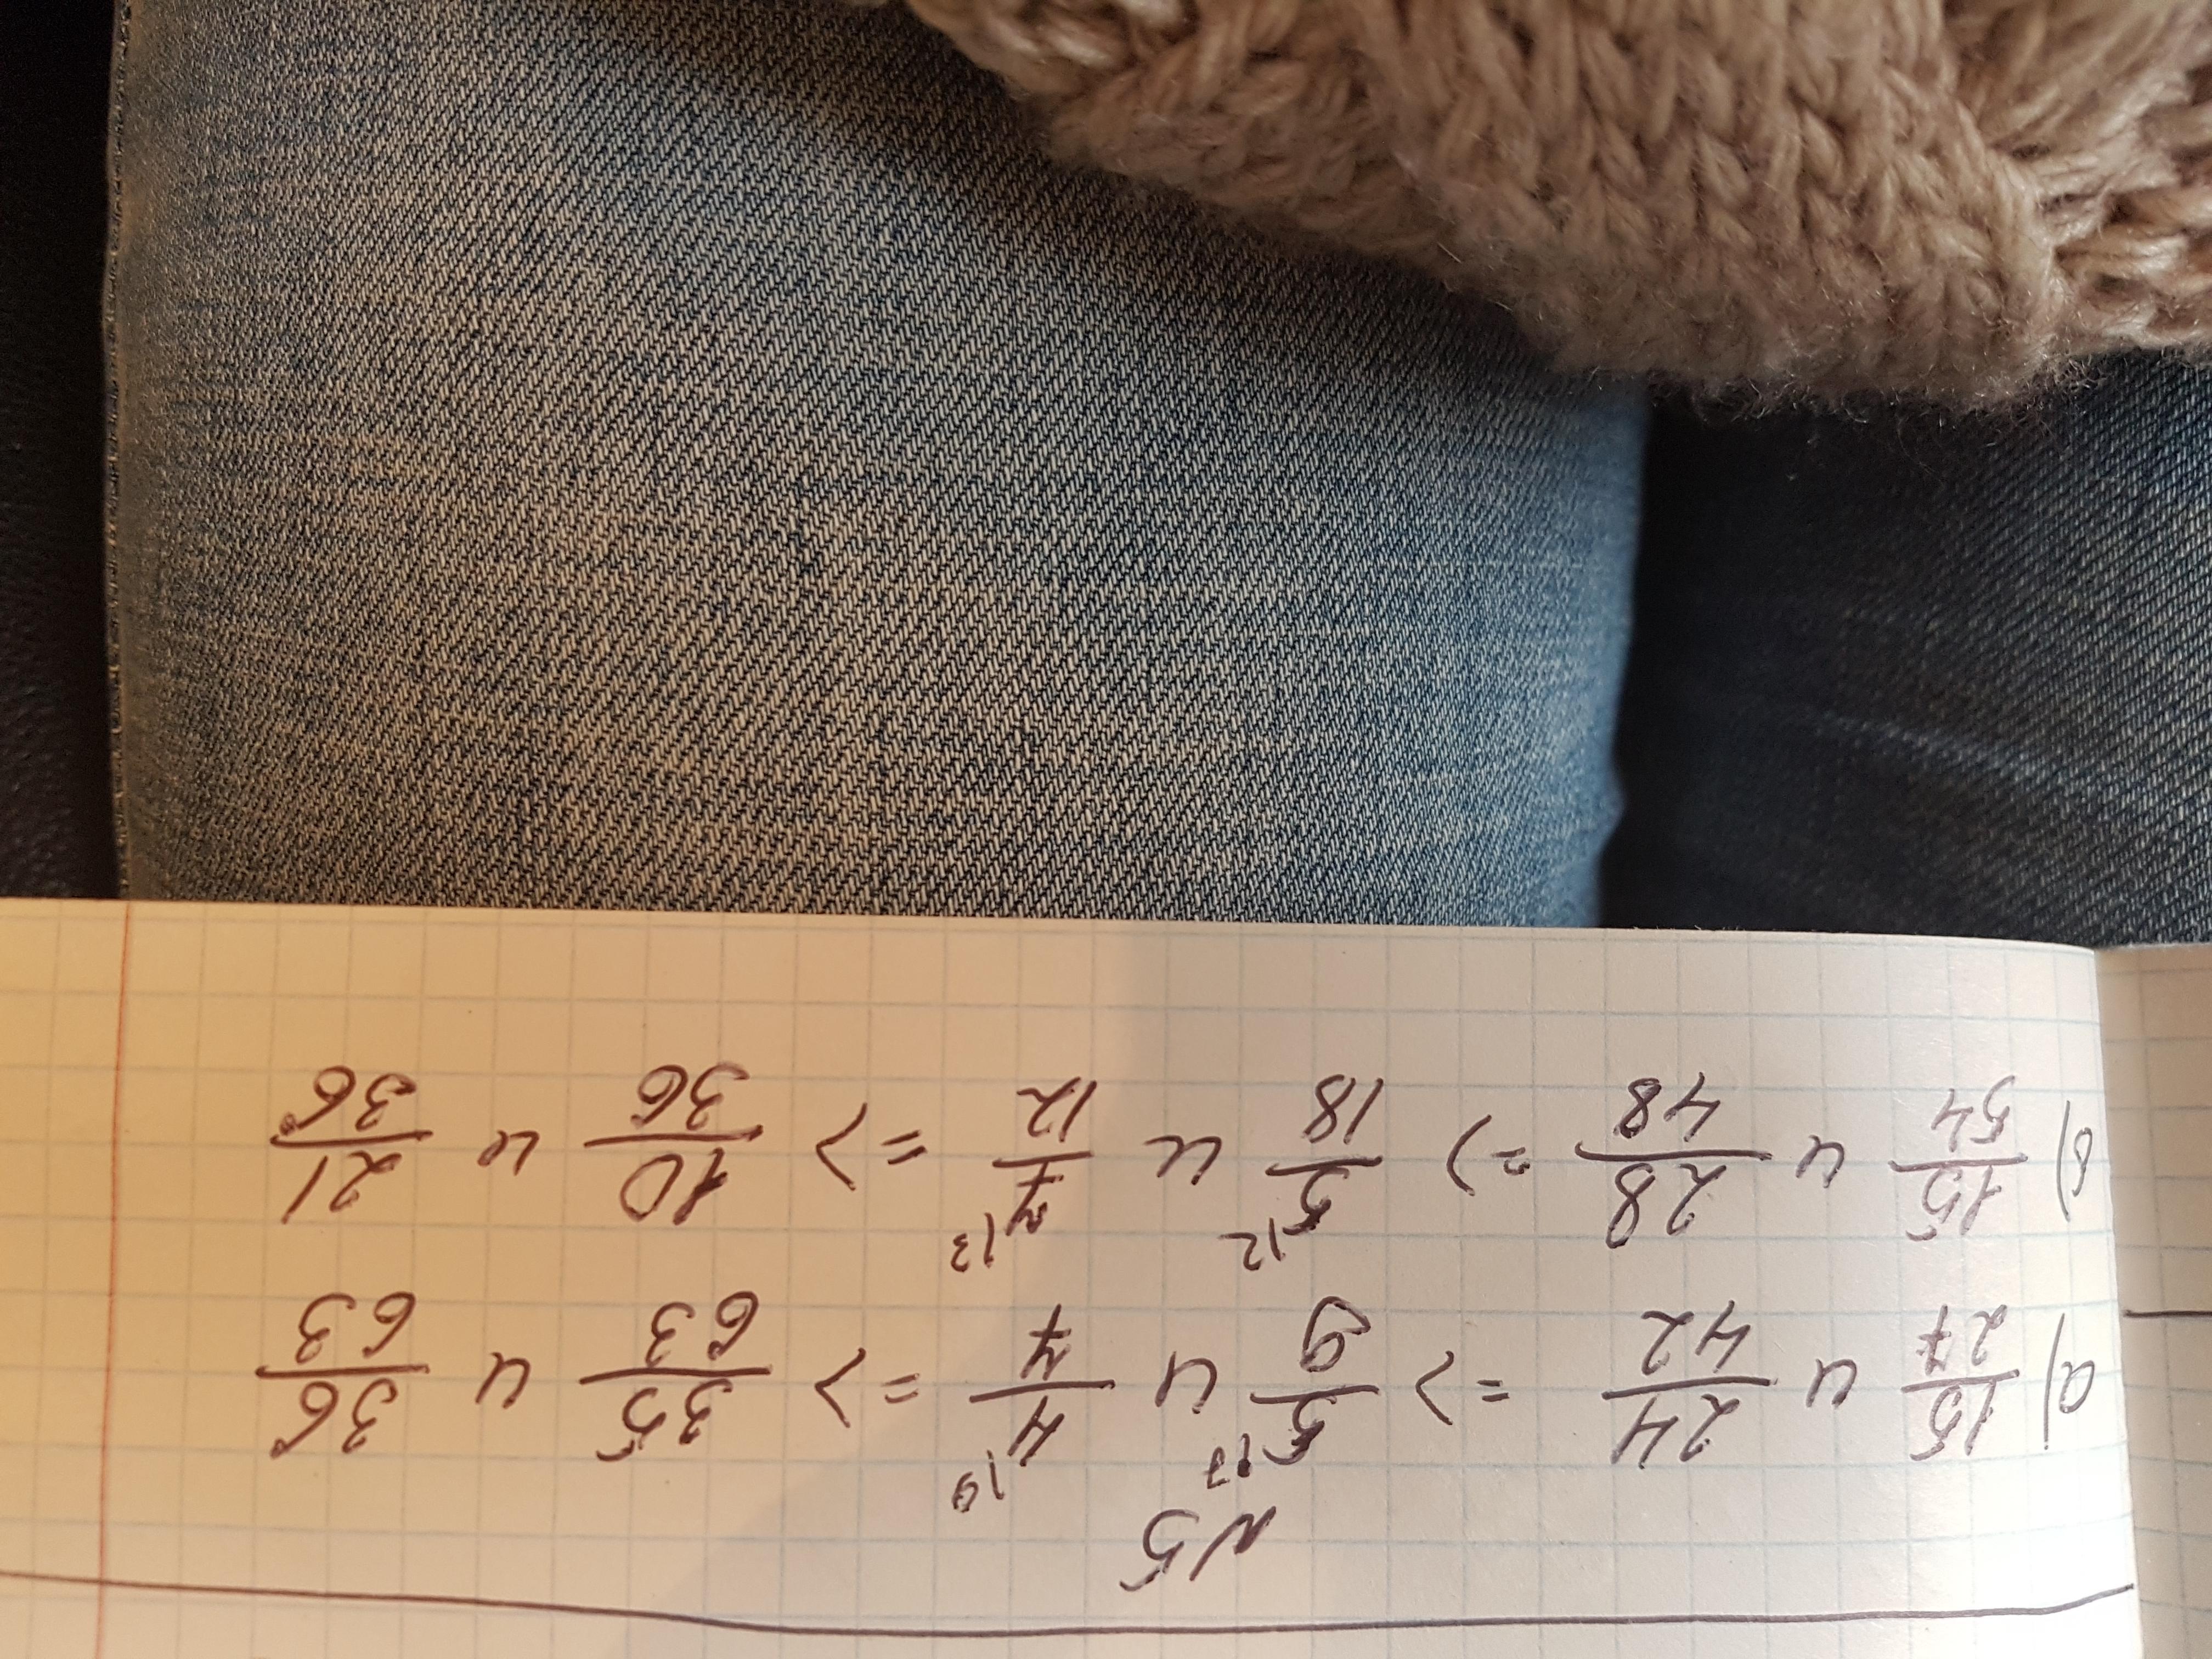 N5
а) 15/27 и 24/42 => 5/9 и 4/7 => 35/63 и 36/63
б) 15/54 и 28/48 => 5/18 и 7/12 => 10/36 и 21/36